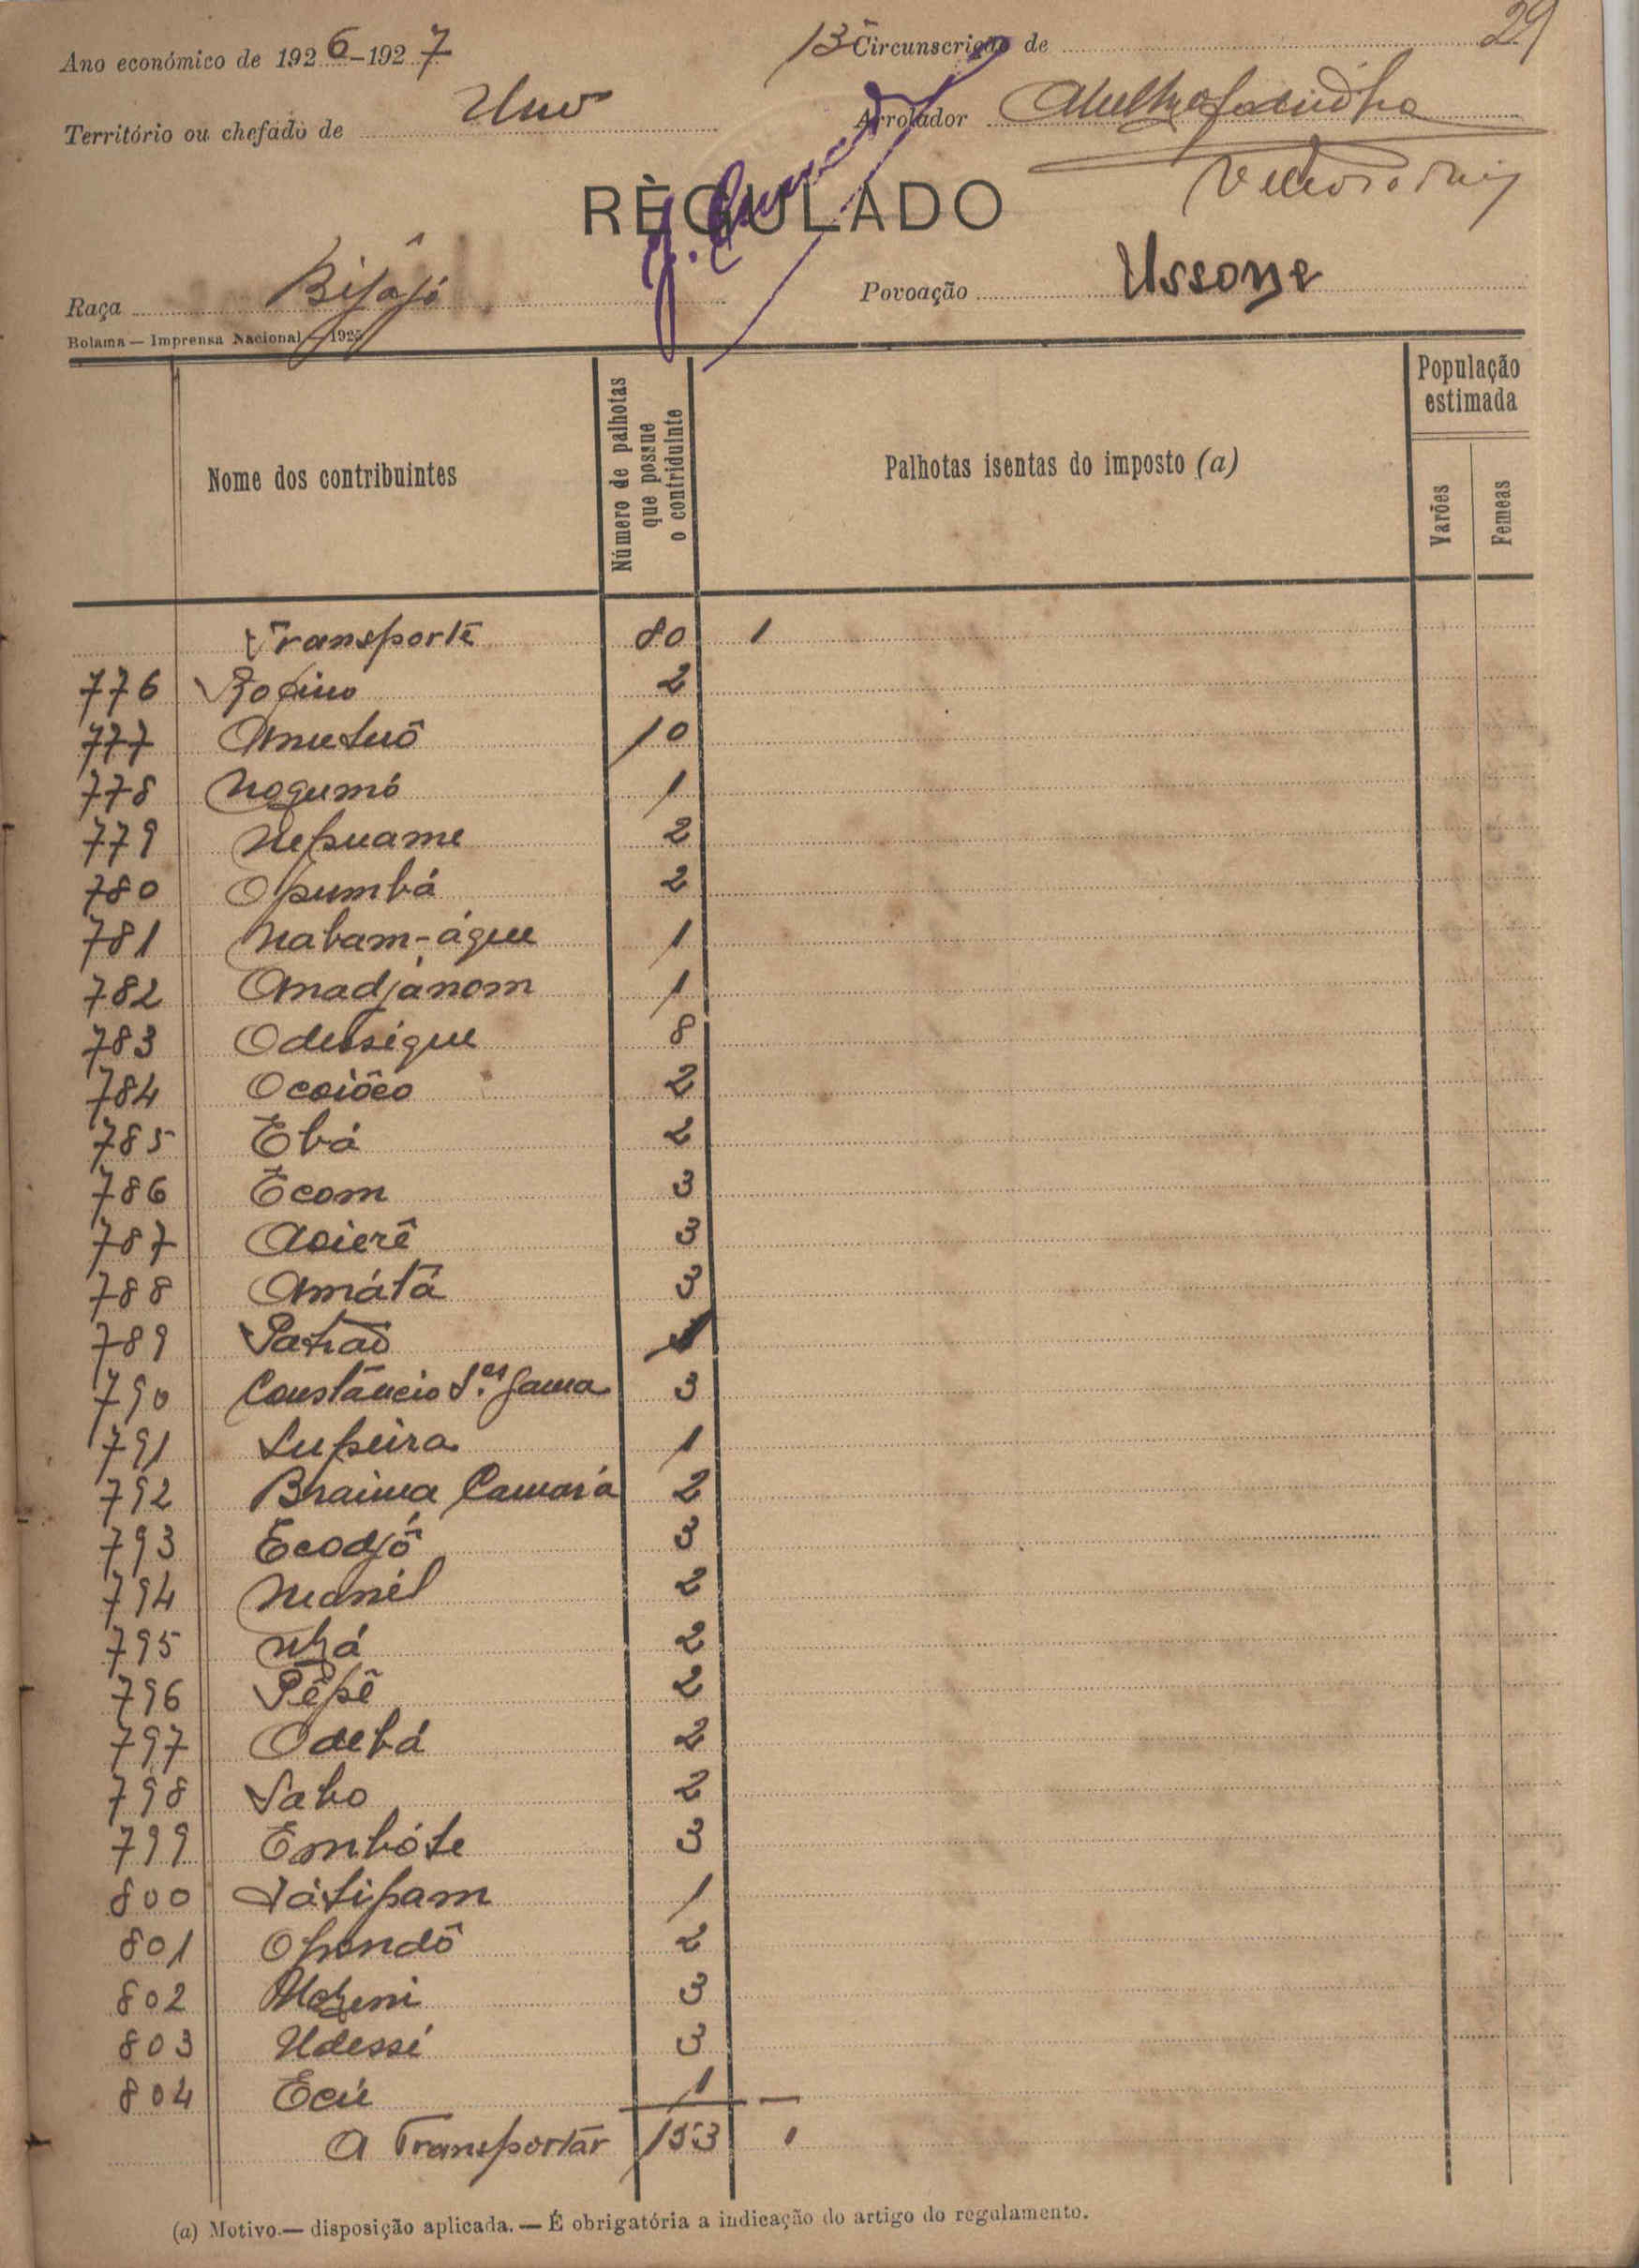 29
Ano económico de 1926-1927 13ª Circunscrição de
Território ou chefado de Uno Arrolador
RÈGULADO
Raça Bijagó Povoação Ussone
Bolama — Imprensa Nacional — 1925
Nome dos contribuintes
Número de palhotas que possue o contriduinte
Palhotas isentas do imposto (a)
População estimada
Varões
Femeas
Transporte 80 1
776 2
777 Amutuô 10
778 Nogumó 1
779 Nepuame 2
780 Opumbá 2
781 Nabam-águe 1
782 Amadjánom 1
783 Odessigue 8
784 2
785 Ebá 2
786 Ecom 3
787 Aoierê 3
788 Amátá 3
789 1
790 Constâncio 3
791 Lupeira 1
792 Braima Camará 2
793 Ecodjô 3
794 Manél 2
795 2
796 Pêpê 2
797 Odebá 2
798 Sabo 2
799 Embóte 3
800 Játipam 1
801 Opondô 2
802 3
803 Udessi 3
804 Ecú 1
A Transportar 153 1
(a) Motivo.— disposição aplicada. — É obrigatória a indicação do artigo do regulamento.